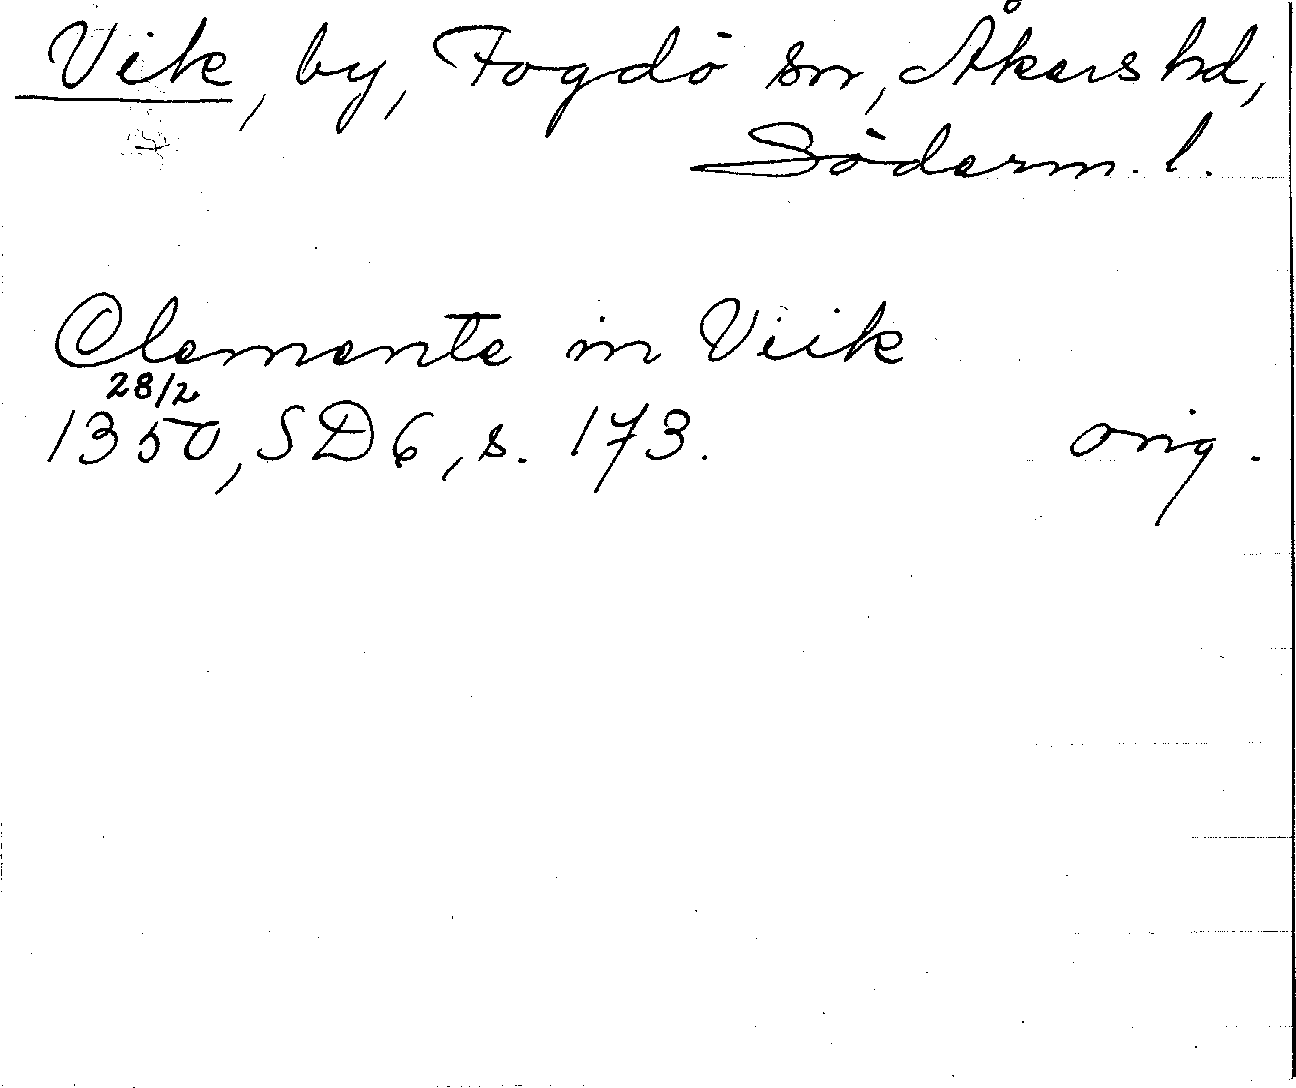 Vik, by, Fogdö sn, Åkers hd,
Söderm. l.
Clemente in Viik
28/2
1350, SD 6, s. 173. orig.